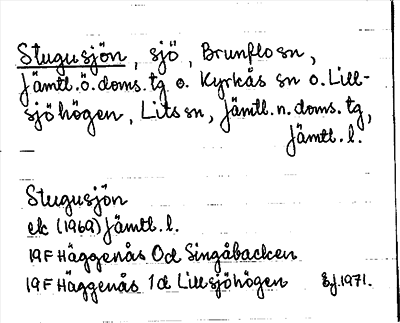 Stugusjön, sjö, Brunflo sn,
Jämtl.ö.doms.tg o. Kyrkås sn o. Lill-
sjöhögen, Lits sn, Jämtl.n.doms.tg,
Jämtl.l.
Stugusjön
ek (1969) Jämtl.l.
19F Häggenås 0d Singåbacken
19F Häggenås 1d Lillsjöhögen
1971.